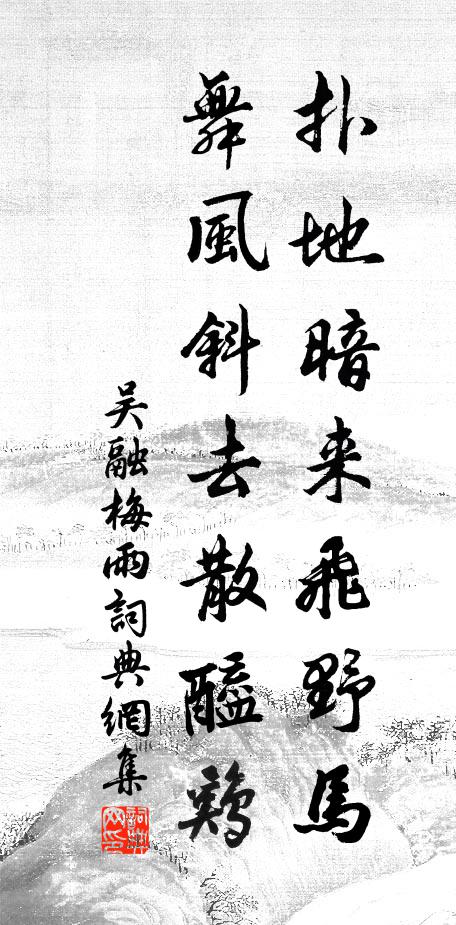 扑地暗来飛野馬
舞風斜去散醯鷄
吴融梅雨詞典網集